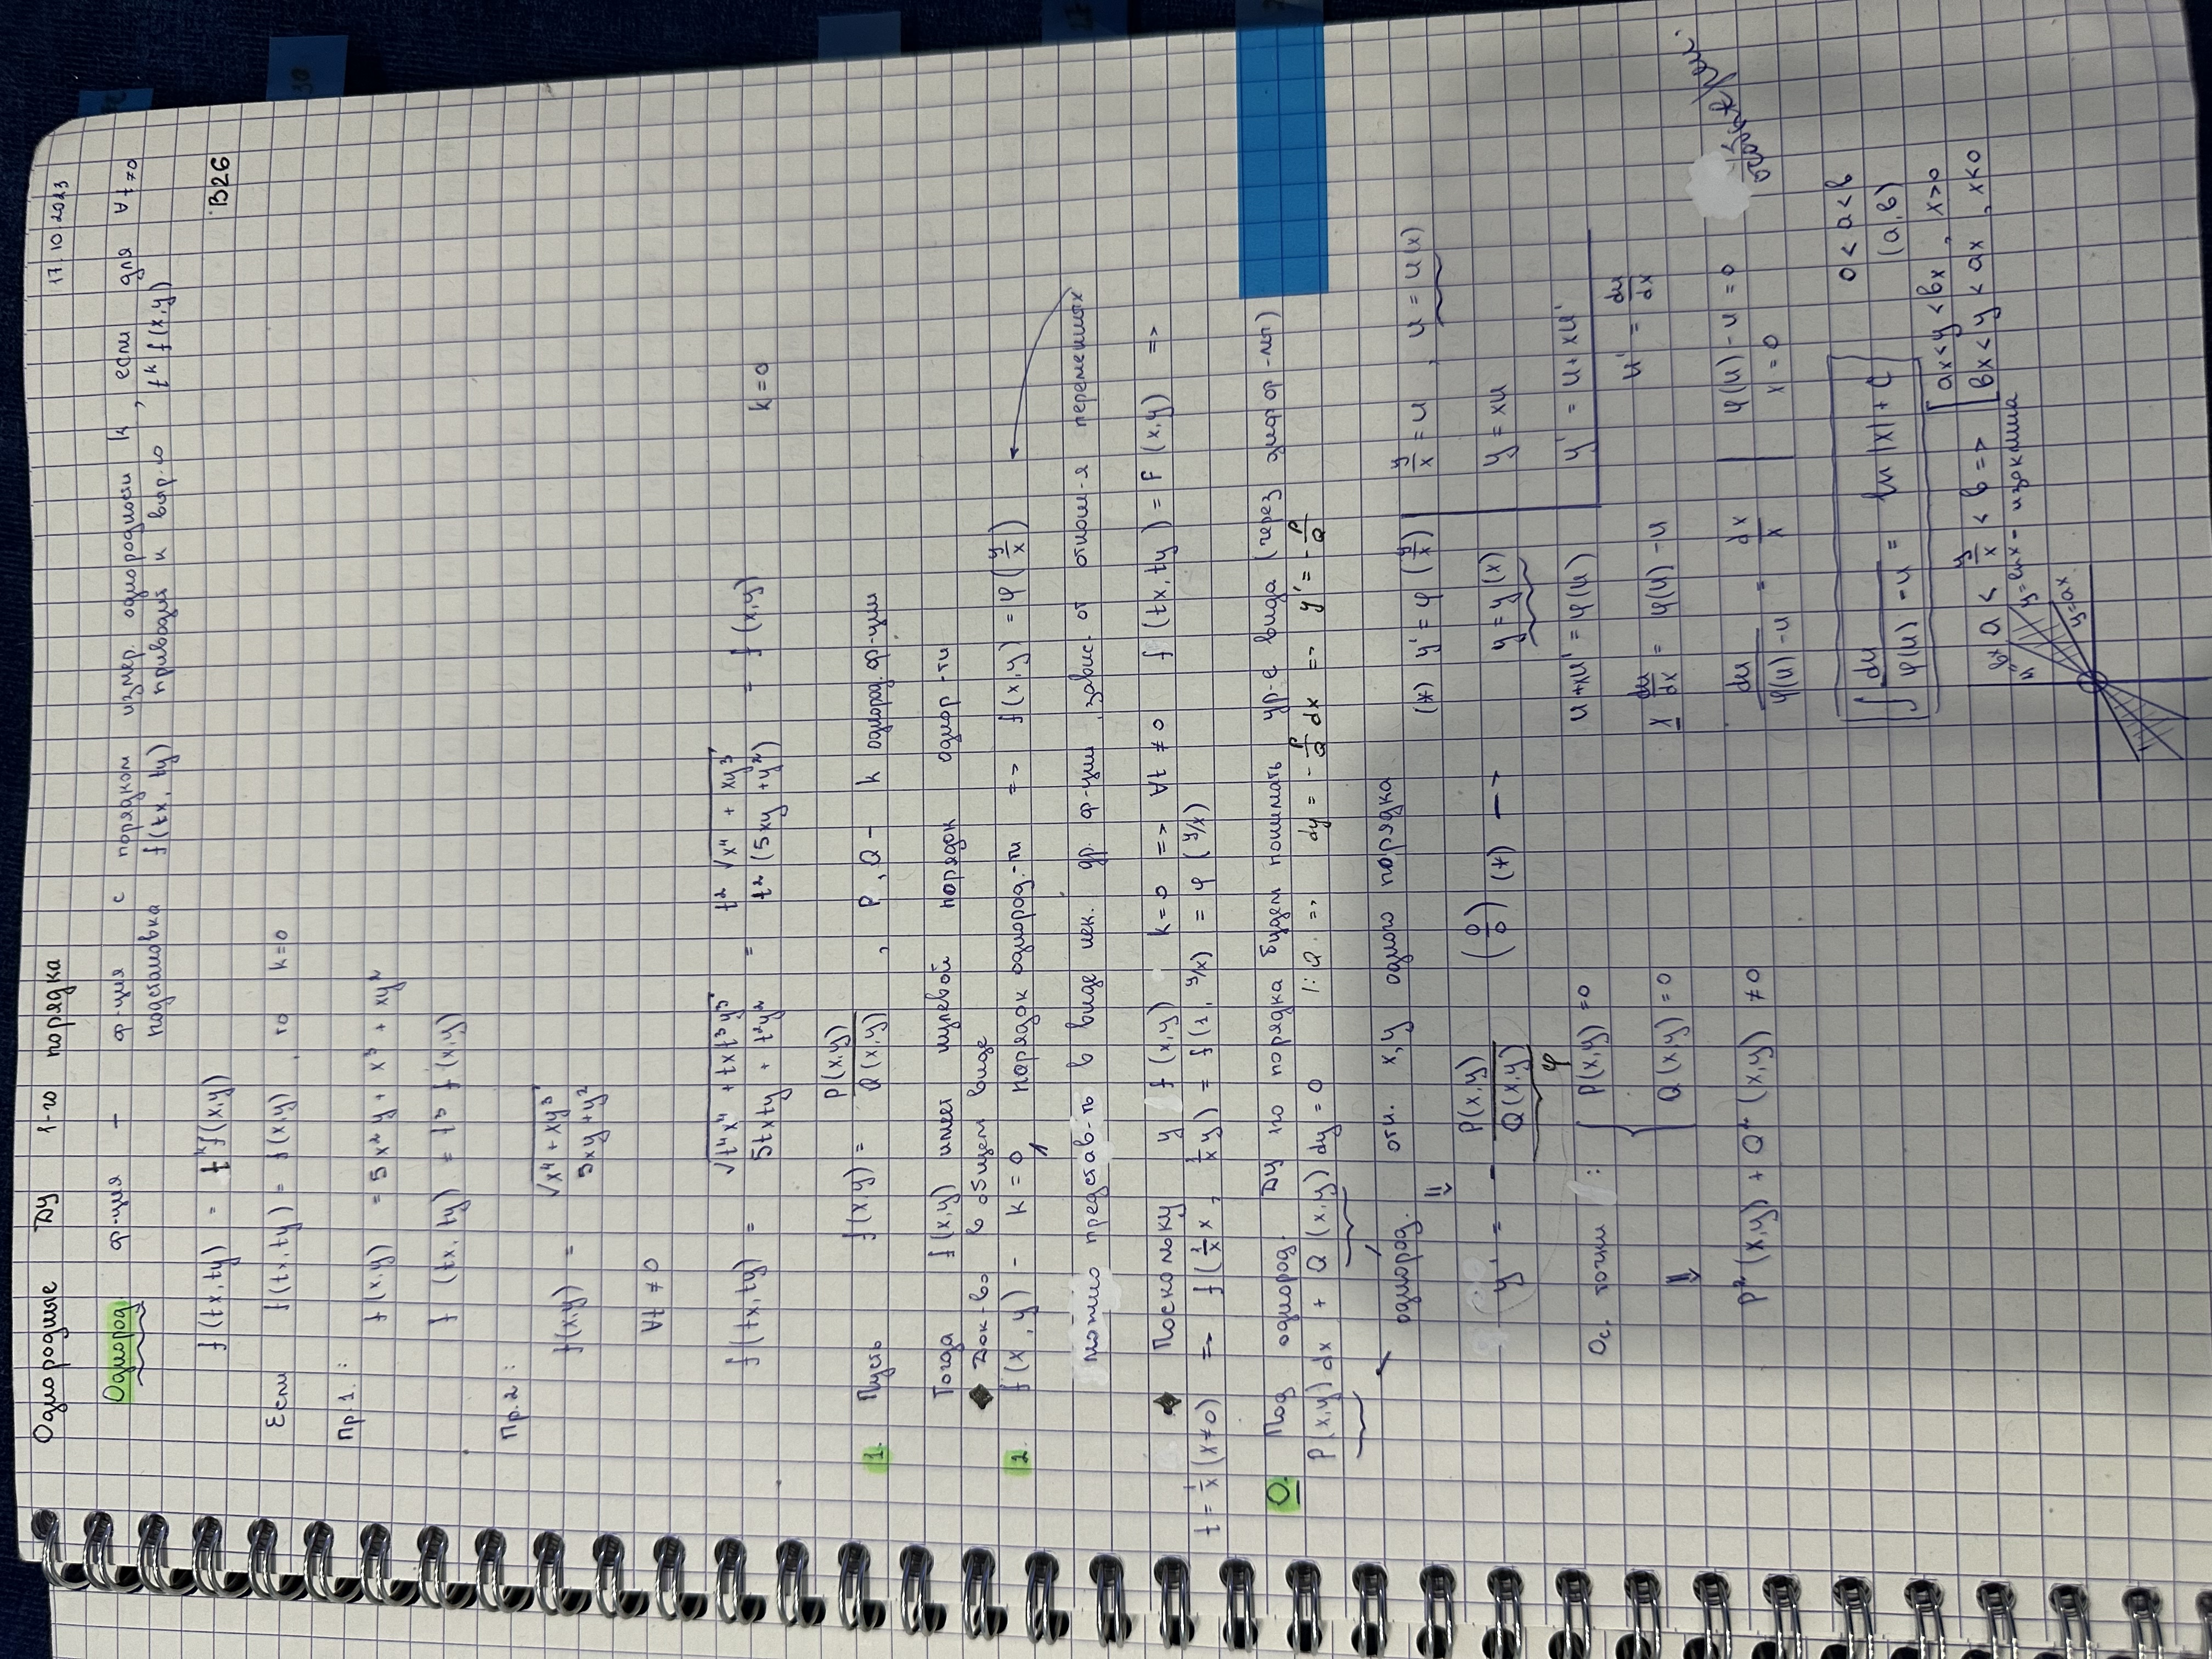 Однородные ДУ 1-го порядка
17.10.2023
Однород. ф-ция – ф-ция с порядком измер. однородности k, если для ∀t≠0
подстановка f(tx, ty) приводит к выр-ю t^k f(x,y)
f(tx,ty) = t^k f(x,y)
B26
Если f(tx,ty) = f(x,y), то k=0
Пр.1.:
f(x,y) = 5x²y + x³ + xy²
f(tx,ty) = t³ f(x,y)
Пр.2:
f(x,y) = √(x⁴ + xy³) / (5xy + y²)
∀t ≠ 0
f(tx,ty) = √(t⁴x⁴ + txt³y³) / (5txty + t²y²) = t²√(x⁴ + xy³) / t²(5xy + y²) = f(x,y) k=0
1. Пусть f(x,y) = P(x,y)/Q(x,y), P, Q – k однород. ф-ции
Тогда f(x,y) имеет нулевой порядок однор-ти
◆ Док-во в общем виде
2. f(x,y) – k = 0 порядок однород.-ти => f(x,y) = φ(y/x)
можно представ-ть в виде нек. др. ф-ции, завис. от отнош-я переменных
◆ Поскольку у f(x,y) k=0 => ∀t ≠ 0 f(tx,ty) = F(x,y) =>
t = 1/x (x≠0) => f(1/x x, 1/x y) = f(1, y/x) = φ(y/x)
О. Под однород. ДУ 1го порядка будем понимать ур-е вида (через диффер-лы)
P(x,y) dx + Q(x,y) dy = 0 |:Q => dy = -P/Q dx => y' = -P/Q
однород. отн. x,y одного порядка
⇓
y' = - P(x,y)/Q(x,y) (0/0) (*) -->
φ
Ос. точки : { P(x,y) = 0
Q(x,y) = 0
⇓
P²(x,y) + Q²(x,y) ≠ 0
(*) y' = φ(y/x) | y/x = u, u = u(x)
y = y(x) | y = xu
u + xu' = φ(u) | y' = u + xu'
x du/dx = φ(u) - u u' = du/dx
du/(φ(u) - u) = dx/x | φ(u) - u = 0
x = 0
особые реш.
∫ du/(φ(u) - u) = ln|x| + C
0 < a < b
(a,b)
a < y/x < b => [ ax < y < bx, x>0
bx < y < ax, x<0
y=bx
y=kx – изоклина
y=ax